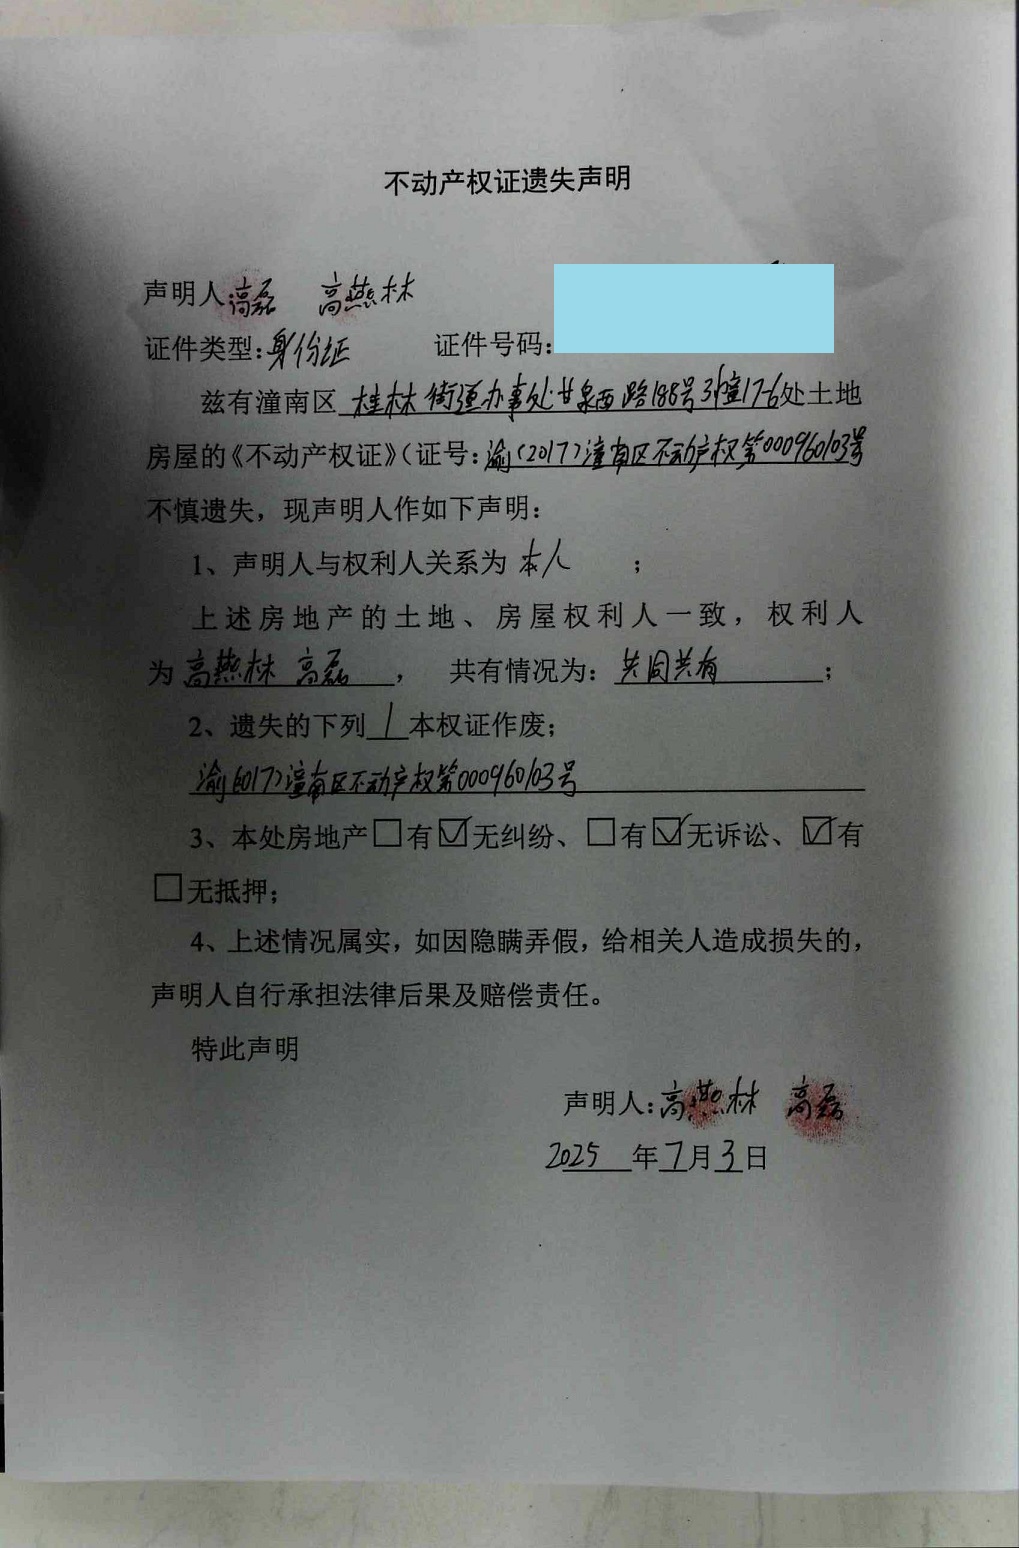 不动产权证遗失声明
声明人:高磊 高燕林
证件类型:身份证 证件号码:
兹有潼南区桂林街道办事处甘泉西路188号3幢17-6处土地
房屋的《不动产权证》(证号:渝(2017)潼南区不动产权第000960103号
不慎遗失，现声明人作如下声明：
1、声明人与权利人关系为本人；
上述房地产的土地、房屋权利人一致，权利人
为高燕林 高磊， 共有情况为：共同共有；
2、遗失的下列1本权证作废；
渝(2017)潼南区不动产权第000960103号
3、本处房地产□有☑无纠纷、□有☑无诉讼、☑有
□无抵押；
4、上述情况属实，如因隐瞒弄假，给相关人造成损失的，
声明人自行承担法律后果及赔偿责任。
特此声明
声明人：高燕林 高磊
2025年7月3日